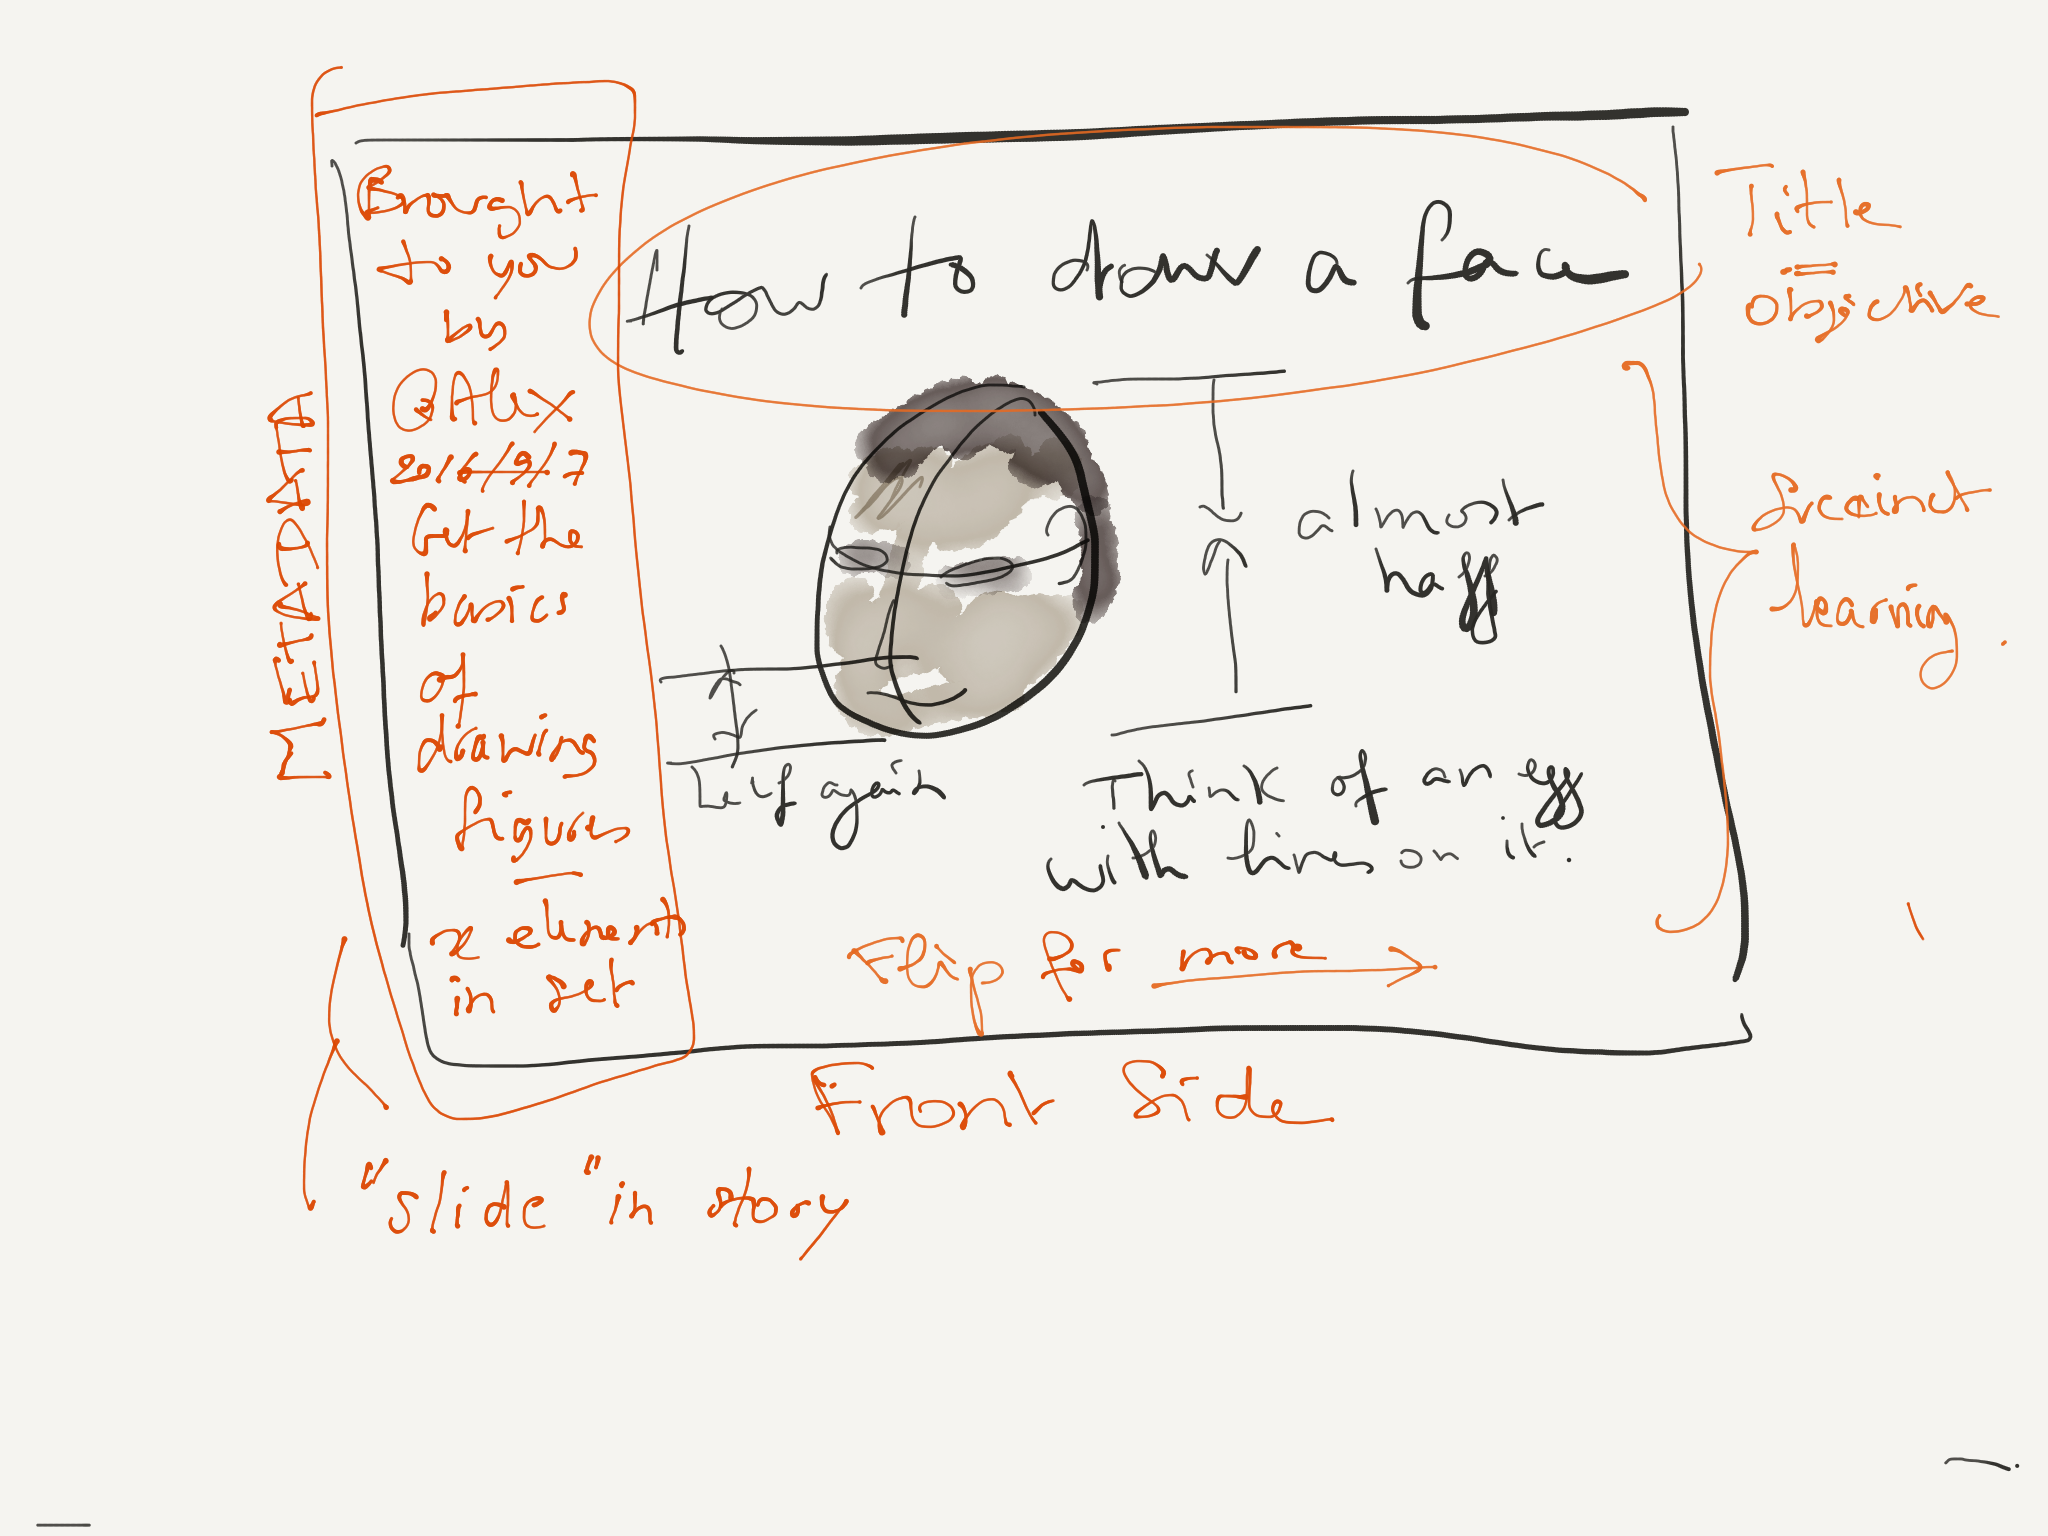 METADATA
Brought
to you
by
@Alex
2016/9/7
Get the
basics
of
drawing
figures
—
x elements
in set
How to draw a face
almost
half
half again
Think of an egg
with lines on it.
Flip for more →
Title
=
objective
Succinct
learning.
Front Side
"slide" in story